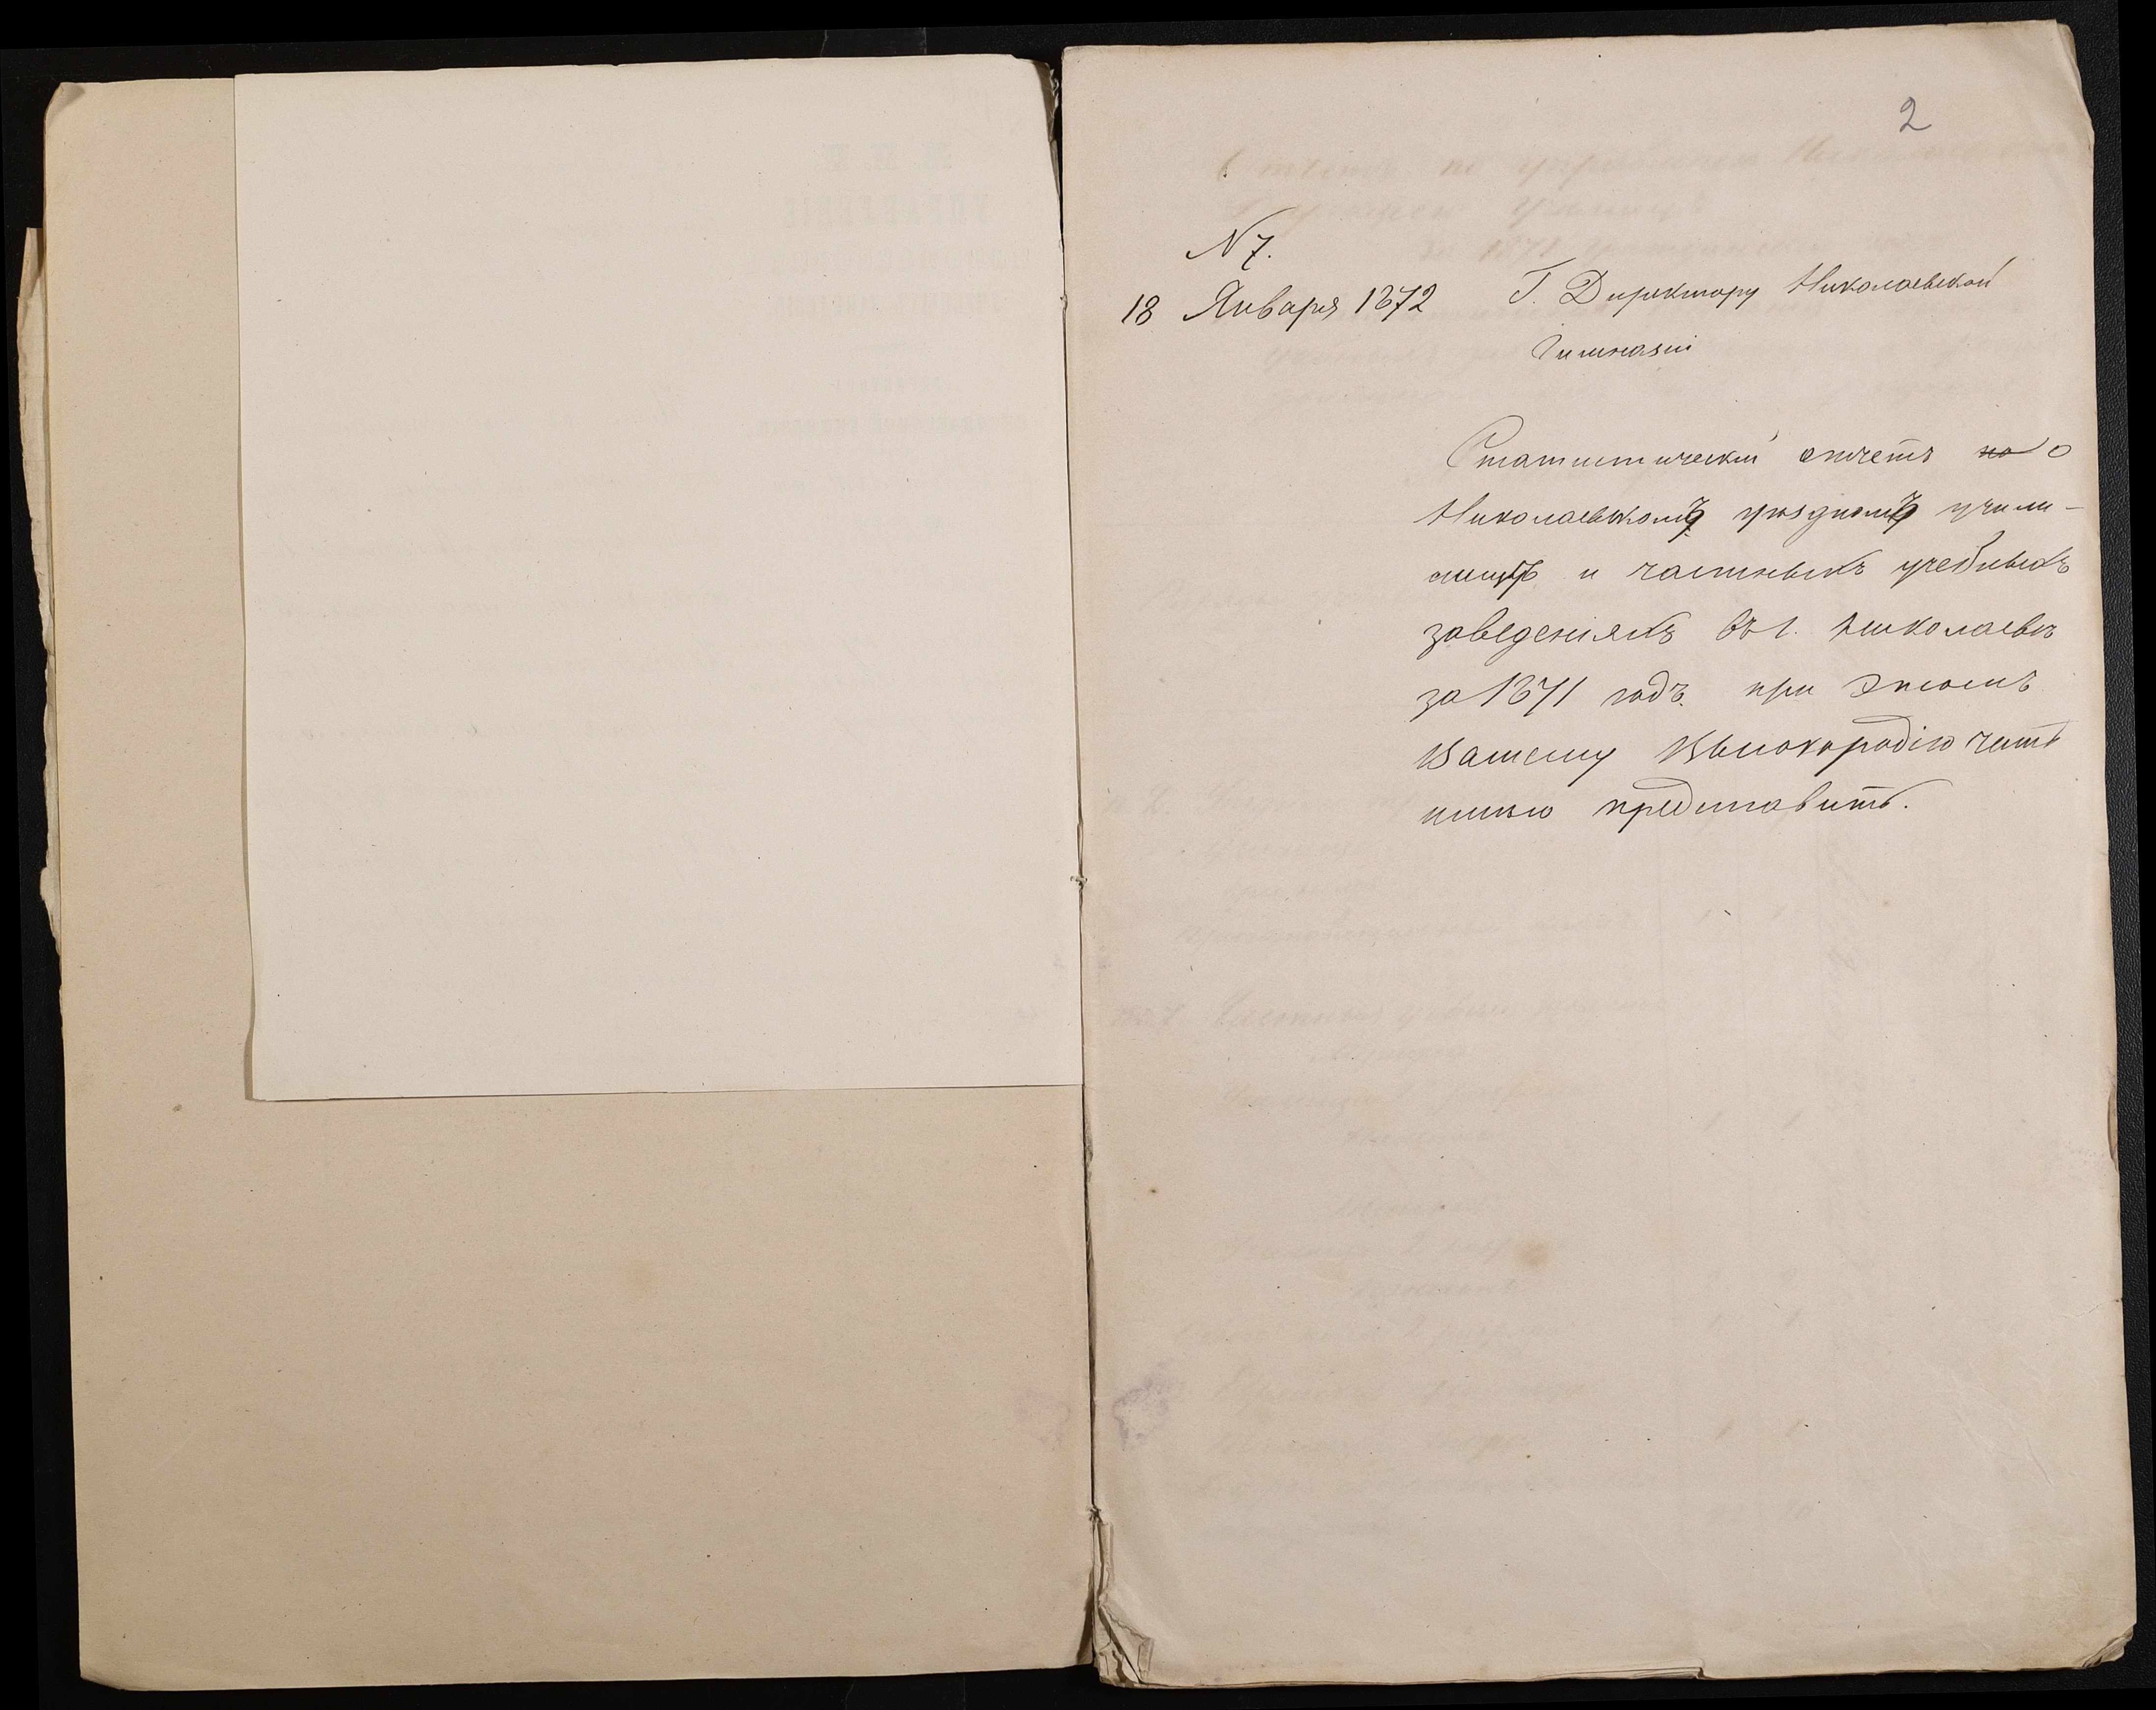 2
N 7.
18 Января 1872
Г. Директору Николаевской
Гимназіи
Статистическій отчетъ по о
Николаевскомъ уѣздномъ учили-
лищѣ и частныхъ учебныхъ
заведеніяхъ въ г. Николаевѣ
за 1871 годъ. при этомъ
Вашему Высокородію честь
имѣю представить.